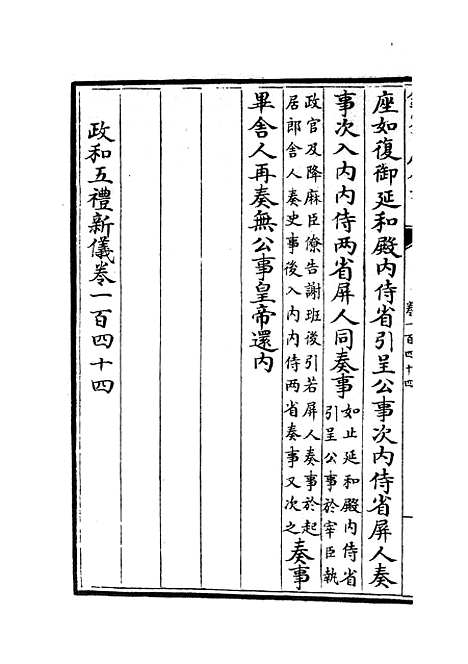 座如復御延和殿内侍省引呈公事次内侍省屏人奏
事次入内内侍两省屏人同奏事如止延和殿内侍省
引呈公事於宰臣執
政官及降麻臣僚告謝班後引若屏人奏事於起
居郎舍人奏史事後入内内侍两省奏事又次之奏事
畢舍人再奏無公事皇帝還内
政和五禮新儀卷一百四十四
卷一百四十四